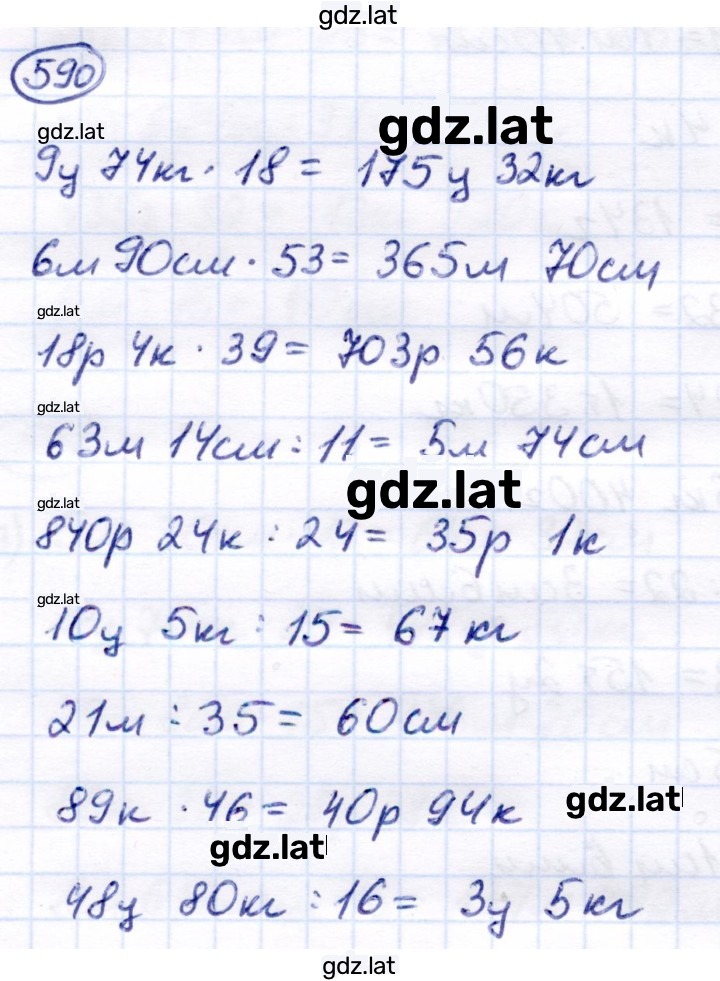 gdz.lat
590
gdz.lat
gdz.lat
9ц 74кг · 18 = 175ц 32кг
6м 90см · 53 = 365м 70см
gdz.lat
18р 4к · 39 = 703р 56к
gdz.lat
63м 14см : 11 = 5м 74см
gdz.lat
gdz.lat
840р 24к : 24 = 35р 1к
gdz.lat
10ц 5кг : 15 = 67 кг
21м : 35 = 60см
89к · 46 = 40р 94к
gdz.lat
gdz.lat
48ц 80кг : 16 = 3ц 5кг
gdz.lat